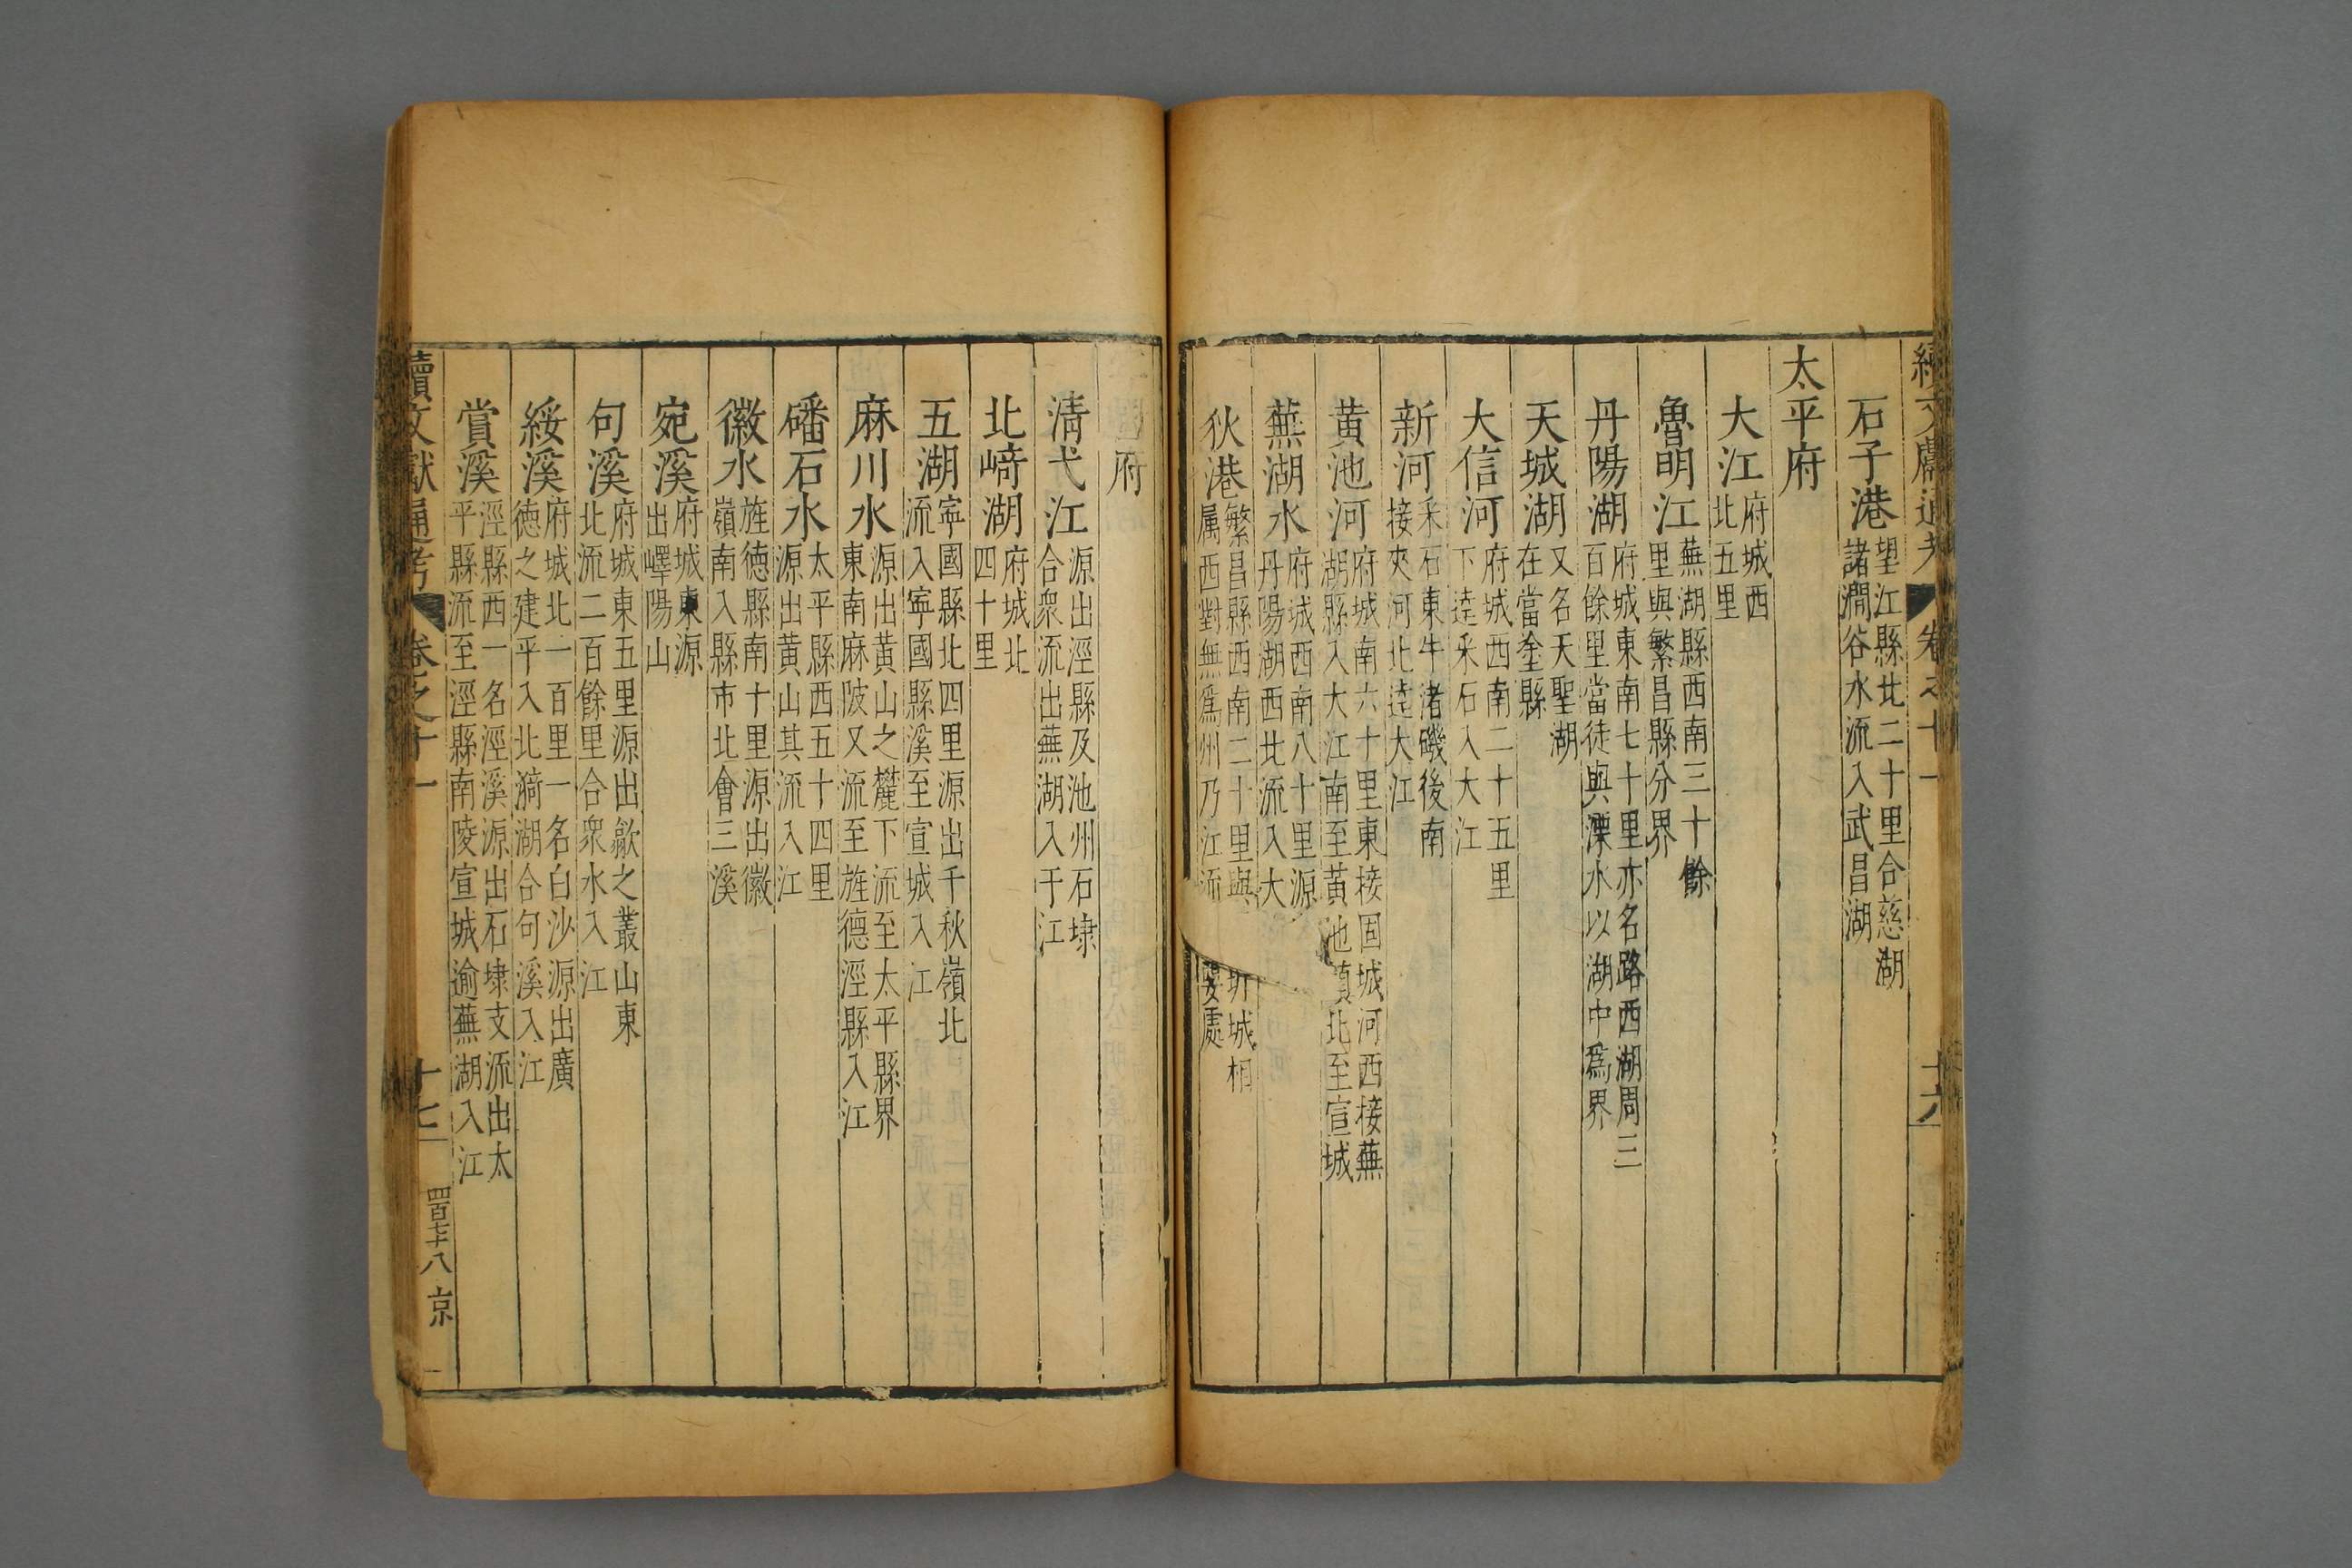 續文獻通考 卷之十一 十六
石子港 望江縣北二十里合慈湖
諸澗谷水流入武昌湖
太平府
大江 府城西
北五里
魯明江 蕪湖縣西南三十餘
里與繁昌縣分界
丹陽湖 府城東南七十里亦名路西湖周三
百餘里當徒與溧水以湖中爲界
天城湖 又名天聖湖
在當塗縣
大信河 府城西南二十五里
下達采石入大江
新河 采石東牛渚磯後南
接夾河北達大江
黄池河 府城南六十里東接固城河西接蕪
湖縣入大江南至黄池鎮北至宣城
蕪湖水 府城西南八十里源
丹陽湖西北流入大
狄港 繁昌縣西南二十里與 圻城相
属西對無爲州乃江流 要處
府
清弋江 源出涇縣及池州石埭
合衆流出蕪湖入于江
北﨑湖 府城北
四十里
五湖 寧國縣北四里源出千秋嶺北
流入寧國縣溪至宣城入江
麻川水 源出黄山之麓下流至太平縣界
東南麻陂又流至旌德涇縣入江
磻石水 太平縣西五十四里
源出黄山其流入江
徽水 旌德縣南十里源出徽
嶺南入縣市北會三溪
宛溪 府城東源
出嶧陽山
句溪 府城東五里源出歙之叢山東
北流二百餘里合衆水入江
綏溪 府城北一百里一名白沙源出廣
德之建平入北漪湖合句溪入江
賞溪 涇縣西一名涇溪源出石埭支流出太
平縣流至涇縣南陵宣城逾蕪湖入江
續文獻通考 卷之十一 十七 四百七十八 京